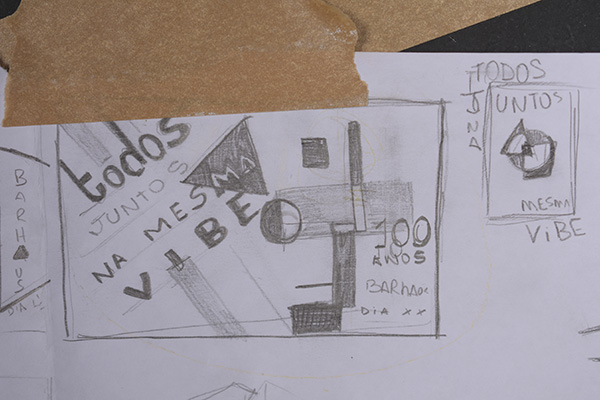 BARHAUS
DIA
todos
JUNTOS
NA MESMA
VIBE
100
ANOS
DIA XX
TODOS
JUNTOS
NA
MESMA
VIBE